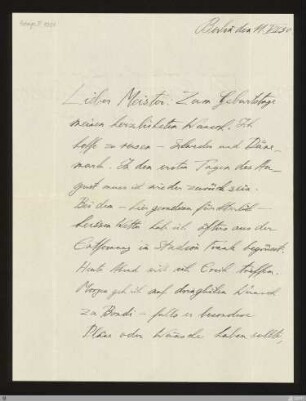 Berlin den 11.VII 30
Lieber Meister: Zum Geburtstage
meinen herzlichsten Wunsch. Ich
hoffe zu reisen – Schweden und Däne-
mark. In den ersten Tagen des Au-
gust muss ich wieder zurück sein.
Bei den – hier geradezu für Herbst –
hab ich öfters aus der
Entfernung im Stadion Frank begrüsst.
Heute Abend will ich treffen.
Morgen geh ich auf Wunsch
zu Bondi – falls er besondere
Pläne oder Wünsche haben sollte,